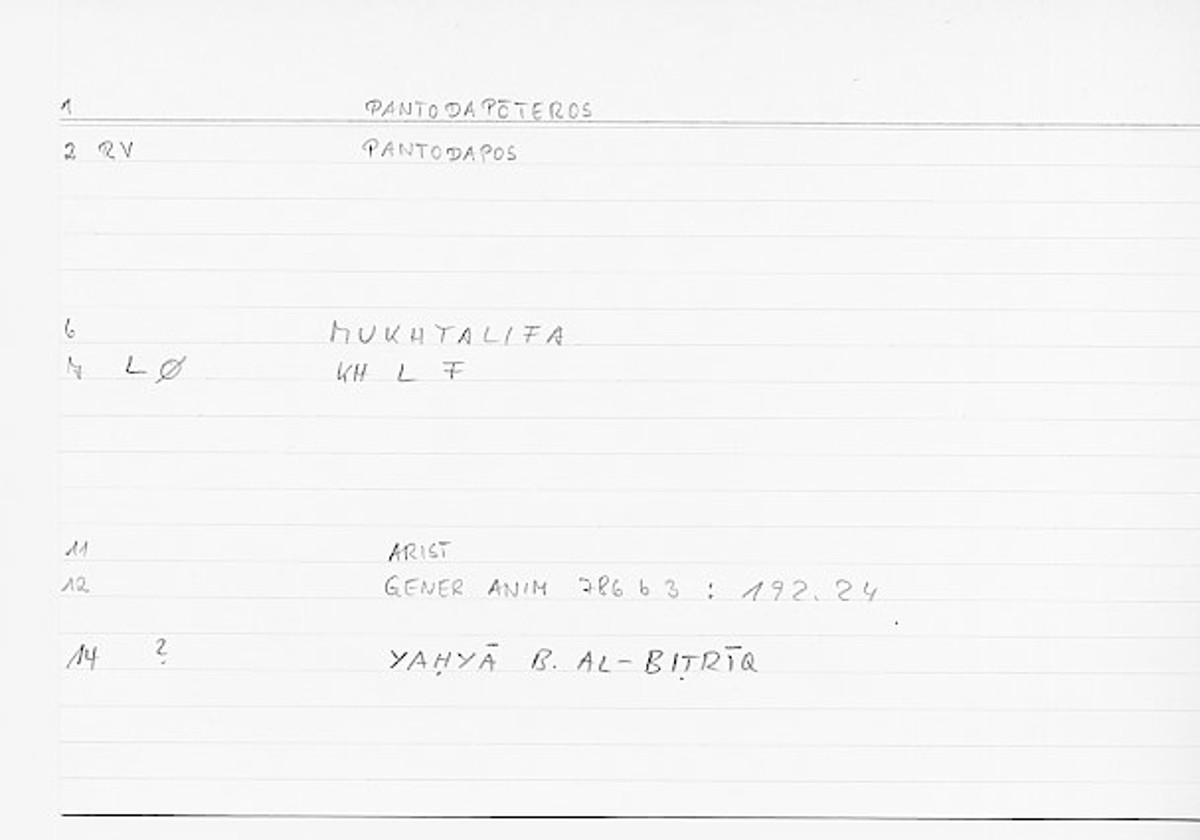 1 PANTODAPŌTEROS
2 RV PANTODAPOS
6 MUKHTALIFA
7 L Ø KH L F
11 ARIST
12 GENER ANIM 786 b 3 : 192.24
14 ? YAḤYĀ B. AL-BIṬRĪQ